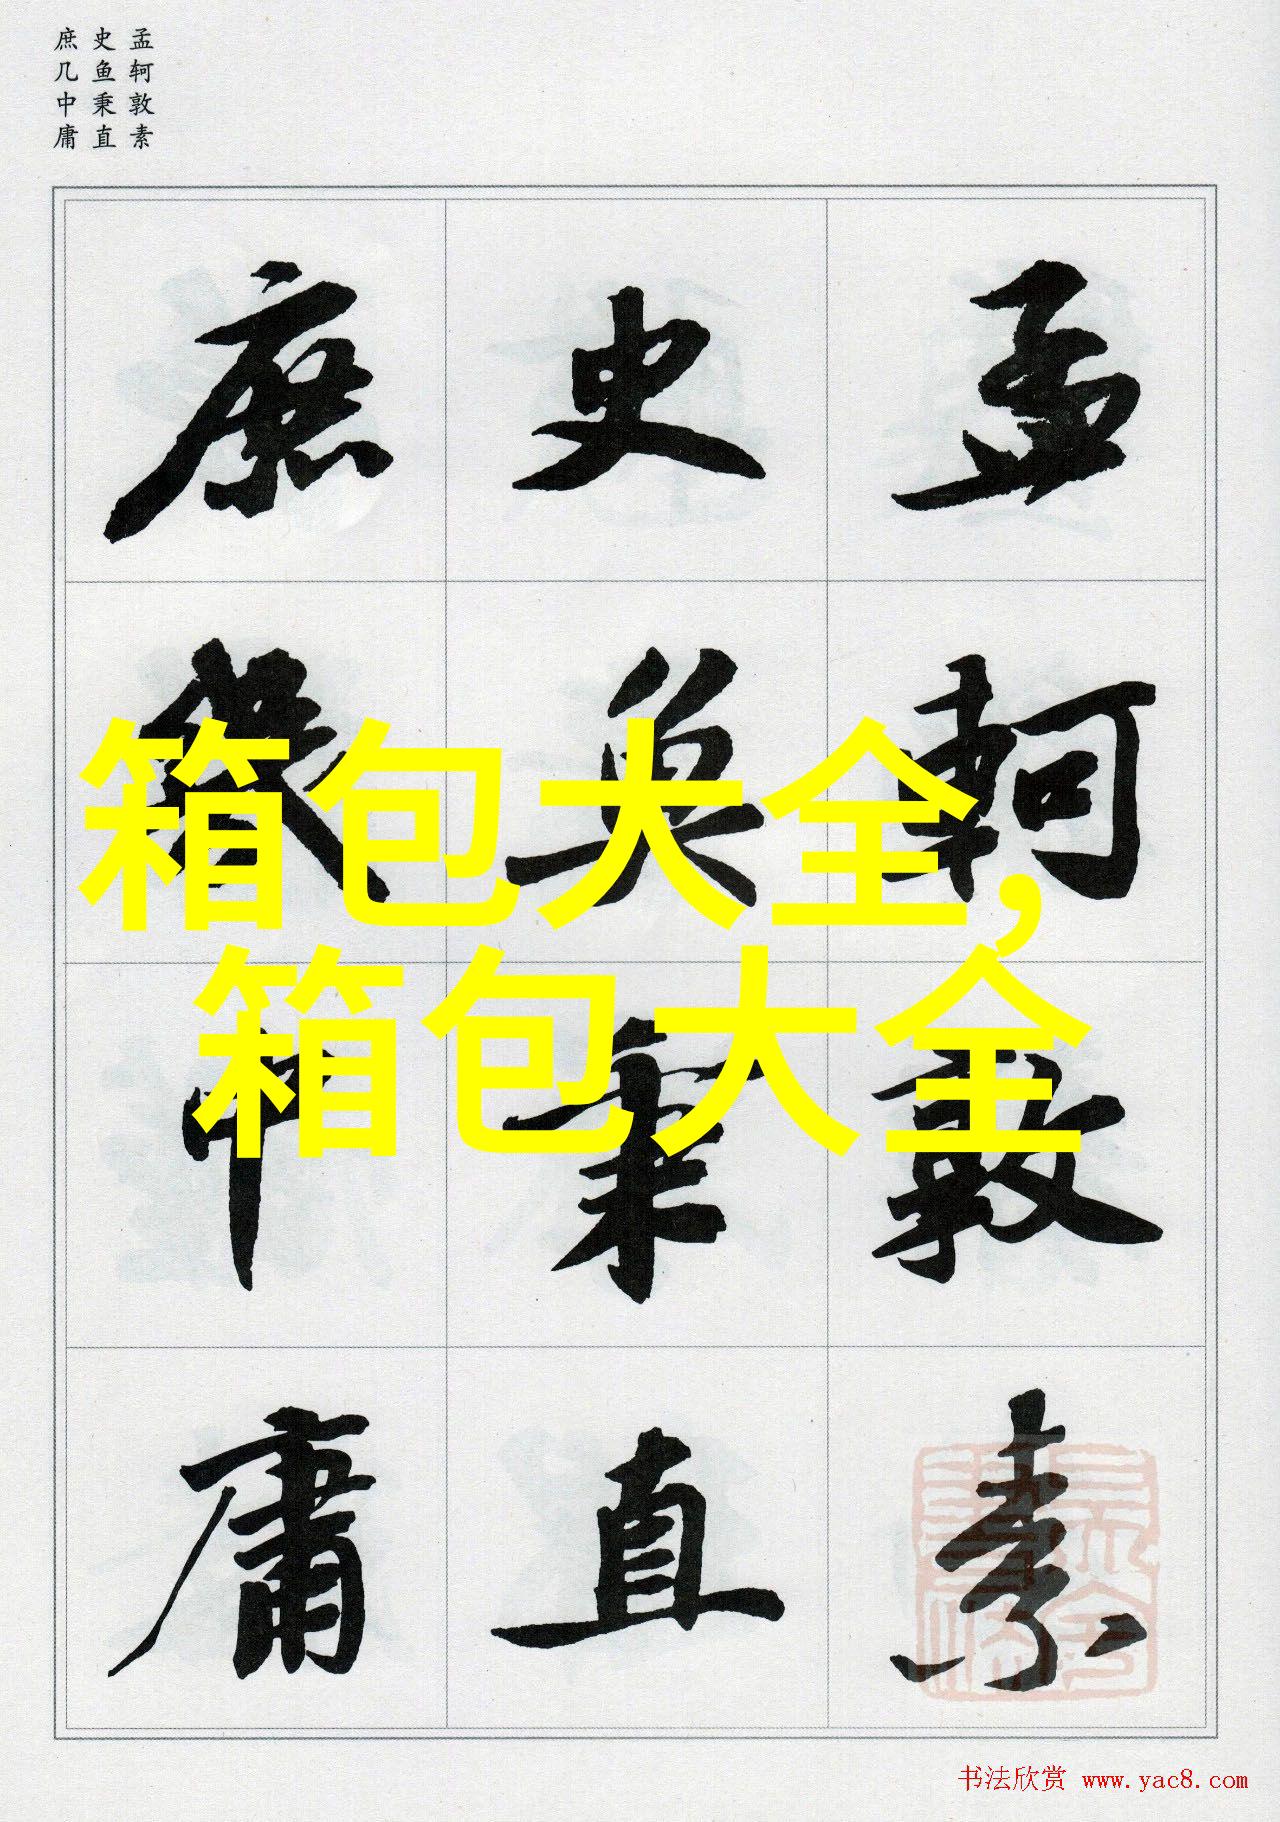 孟轲敦素
史鱼秉直
庶几中庸
孟軻敦素
史魚秉直
庶幾中庸
箱包大全,
箱包大全
书法欣赏 www.yac8.com